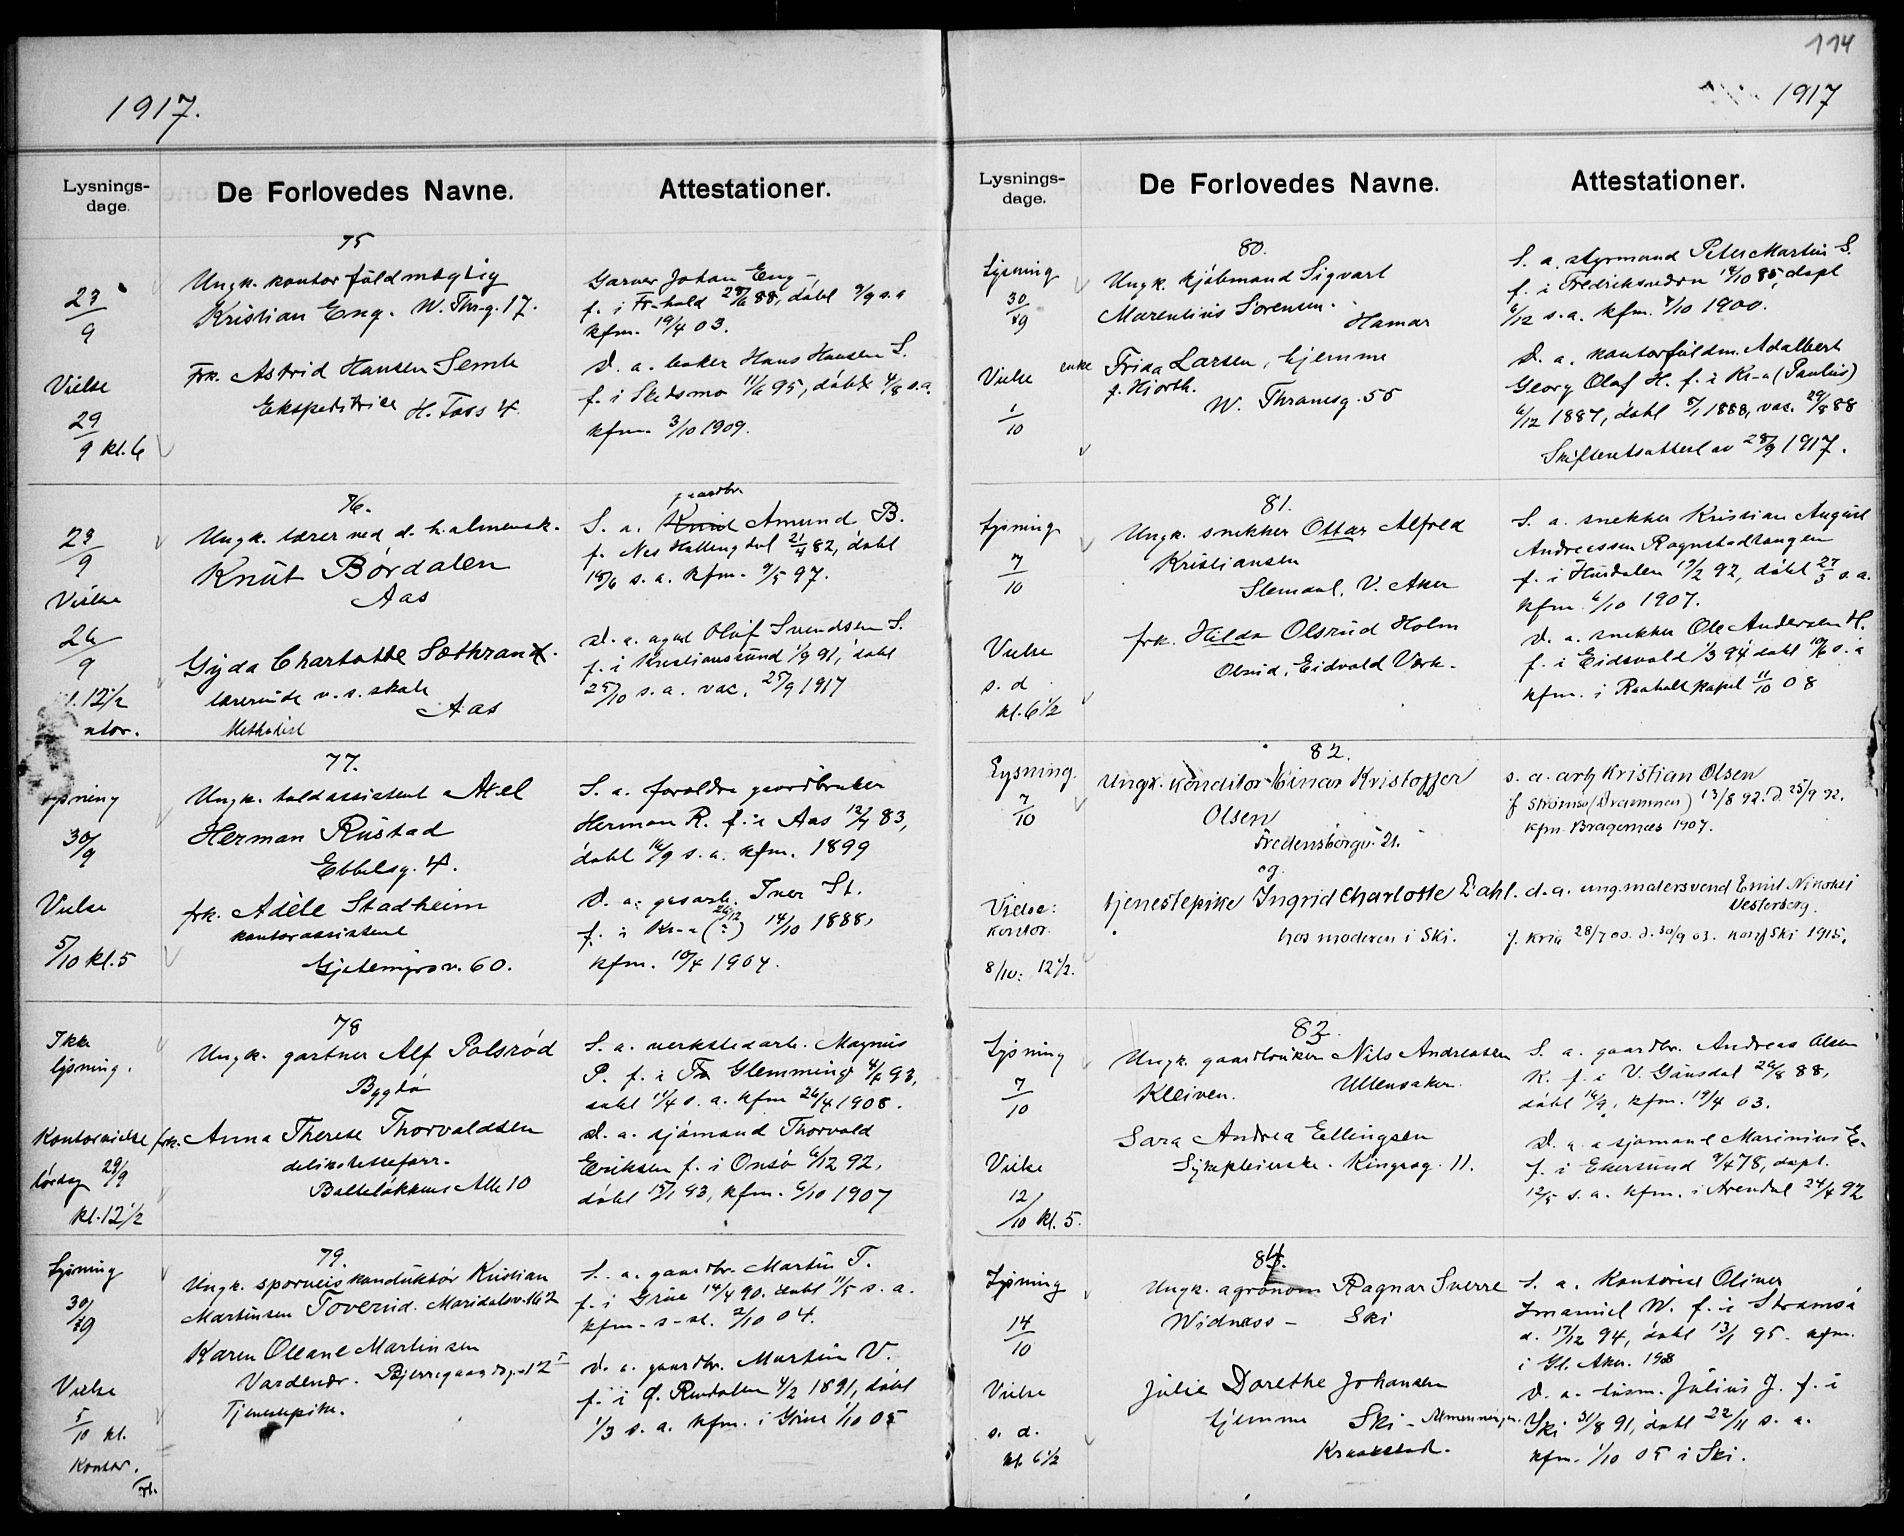 114
1917.
Lysnings-
dage.
De Forlovedes Navne.
Attestationer.
75
23
9
Vielse
29
9 kl. 6
Ungk. kontorfuldmægtig
Kristian Eng. W. Thrg. 17.
Frk. Astrid Hansen Semb
Ekspeditrice H. Foss 4.
Garver Johan Eng -
f. i Fr-hald 28/6 88, døbt 9/9 s.a
kfm. 19/4 03.
D. a. baker Hans Hansen S.
f. i Skedsmo 11/6 95, døbt 4/8 s.a.
kfm. 3/10 1909.
76.
23
9
Vielse
26
9
kl. 12 1/2
ntor.
Ungk. lærer ved d. h. almensk.
Knut Børdalen
Aas
Gyda Charlotte Sæthran
lærerinde v. s. skole
Aas
Methodist
gaardbr.
S. a. Knud Amund B.
f. Nes Hallingdal 21/4 82, døbt
18/6 s. a. kfm. 9/5 97.
D. a. agent Oluf Svendsen S.
f. i Kristiansund 1/9 91, døbt
25/10 s. a. vac. 25/9 1917
77.
lysning
30/9
Vielse
5/10 kl. 5
Ungk. toldassistent Axel
Herman Rustad
Ebbelsg. 4.
frk. Adèle Stadheim
kontorassistent
Gjetemyrsv. 60.
S. a. foreldre gaardbruker
Herman R. f. i Aas 12/7 83,
døbt 16/9 s. a. kfm. 1899
D. a. gasarb. Iver St.
f. i Kr-a (26/12 ?) 14/10 1888,
kfm. 10/4 1904.
78
Ikke
lysning.
Kontorvielse
lørdag 29/9
kl. 12 1/2
Ungk. gartner Alf Polsrød
Bygdø
frk. Anna Therese Thorvaldsen
delikatesseforr.
Balteløkkens Alle 10
S. a. verkstedarb. Magnus
P. f. i Glemminge 4/2 93,
døbt 4/4 s. a. kfm 26/4 1908.
D. a. sjømand Thorvald
Eriksen f. i Onsø 6/12 92,
døbt 15/1 93, kfm. 6/10 1907
79.
Lysning
30/9
Vielse
5
10 kl.
Kontor.
Ungk. sporveiskonduktør Kristian
Martinsen Toverud. Maridalsv. 162
Karen Oleane Martinsen
Vardenær. Bjerregaardsg. 12 I
Tjenestepike.
S. a. gaardbr. Martin T.
f. i Grue 14/4 90. døbt 11/5 s. a.
kfm. s. st. 2/10 04.
D. a. gaardbr. Martin V.
f. i Ø. Rendalen 4/2 1891, døbt
1/3 s. a. kfm. i Grue 1/10 05
1917
Lysnings-
dage.
De Forlovedes Navne.
Attestationer.
80.
Lysning
30
9
Vielse
1
10
Ungk. kjøbmand Sigvart
Marentius Sørensen.
Hamar
enke Frida Larsen, hjemme
f. Hjorth.
W. Thranesg. 55
S. a. styrmand Peter Martin S.
f. i Fredriksværn 14/10 85, døpt
6/12 s.a. kfm. 7/10 1900.
D. a. kontorfuldm. Adalbert
Georg Olaf H. f. i Kr-a (Paulus)
6/12 1887, døbt 8/1 1888, vac. 29/8 88
Skifteretsattest av 28/9 1917.
81.
Lysning
7
10
Vielse
s. d
kl. 6 1/2
Ungk. snekker Ottar Alfred
Kristiansen
Slemdal, V. Aker
frk. Hilda Olsrud Holm
Olsrud, Eidsvold Verk.
S. a. snekker Kristian August
Andreassen Rognstadtangen
f. i Hurdalen 17/2 92, døbt 27/3 s. a.
kfm. 6/10 1907.
D. a. snekker Ole Andersen H.
f. i Eidsvold 1/3 94 døbt 10/6 s. a
kfm. i Raaholt kapel 11/10 08
82.
Lysning.
7
10
Vielse:
kontor.
8/10: 12 1/2.
Ungk. konditor Einar Kristoffer
Olsen
Fredensborgv. 21.
og
tjenestepike Ingrid Charlotte Dahl.
hos moderen i Ski.
s. a. arb. Kristian Olsen
f Strømsø (Drammen) 13/8 92. d. 25/9 92.
kfm. Bragernes 1907.
d. a. ung. malersvend Emil Nikolai
Vesterberg.
f. Kria 28/7 00. d. 30/9 03. konf Ski 1915.
83.
Lysning
7
10
Vielse
12
10 kl. 5.
Ungk. gaardbruker Nils Andreassen
Kleiven. Ullensaker.
Sara Andrea Ellingsen
Sykepleierske. Kingosg. 11.
S. a. gaardbr. Andreas Olsen
K. f. i V. Gausdal 26/8 88,
døbt 16/9, kfm. 19/4 03.
D. a. sjømand Marinius E.
f. i Ekersund 9/4 78, døpt.
12/5 s. a. kfm. i Arendal 24/4 92
84.
Lysning
14
10
Vielse
s. d.
kl. 6 1/2
Ungk. agronom Ragnar Sverre
Widness - Ski
Julie Dorethe Johansen
hjemme Ski - Almenningen.
Kraakstad.
S. a. Kontorist Oliver
Imanuel W. f. i Strømsø
d. 17/12 94, døbt 13/1 95. kfm.
i Gl. Aker. 1908
D. a. husm. Julius J. f. i
Ski 31/8 91, døbt 22/11 s. a.
kfm. 1/10 05 i Ski.